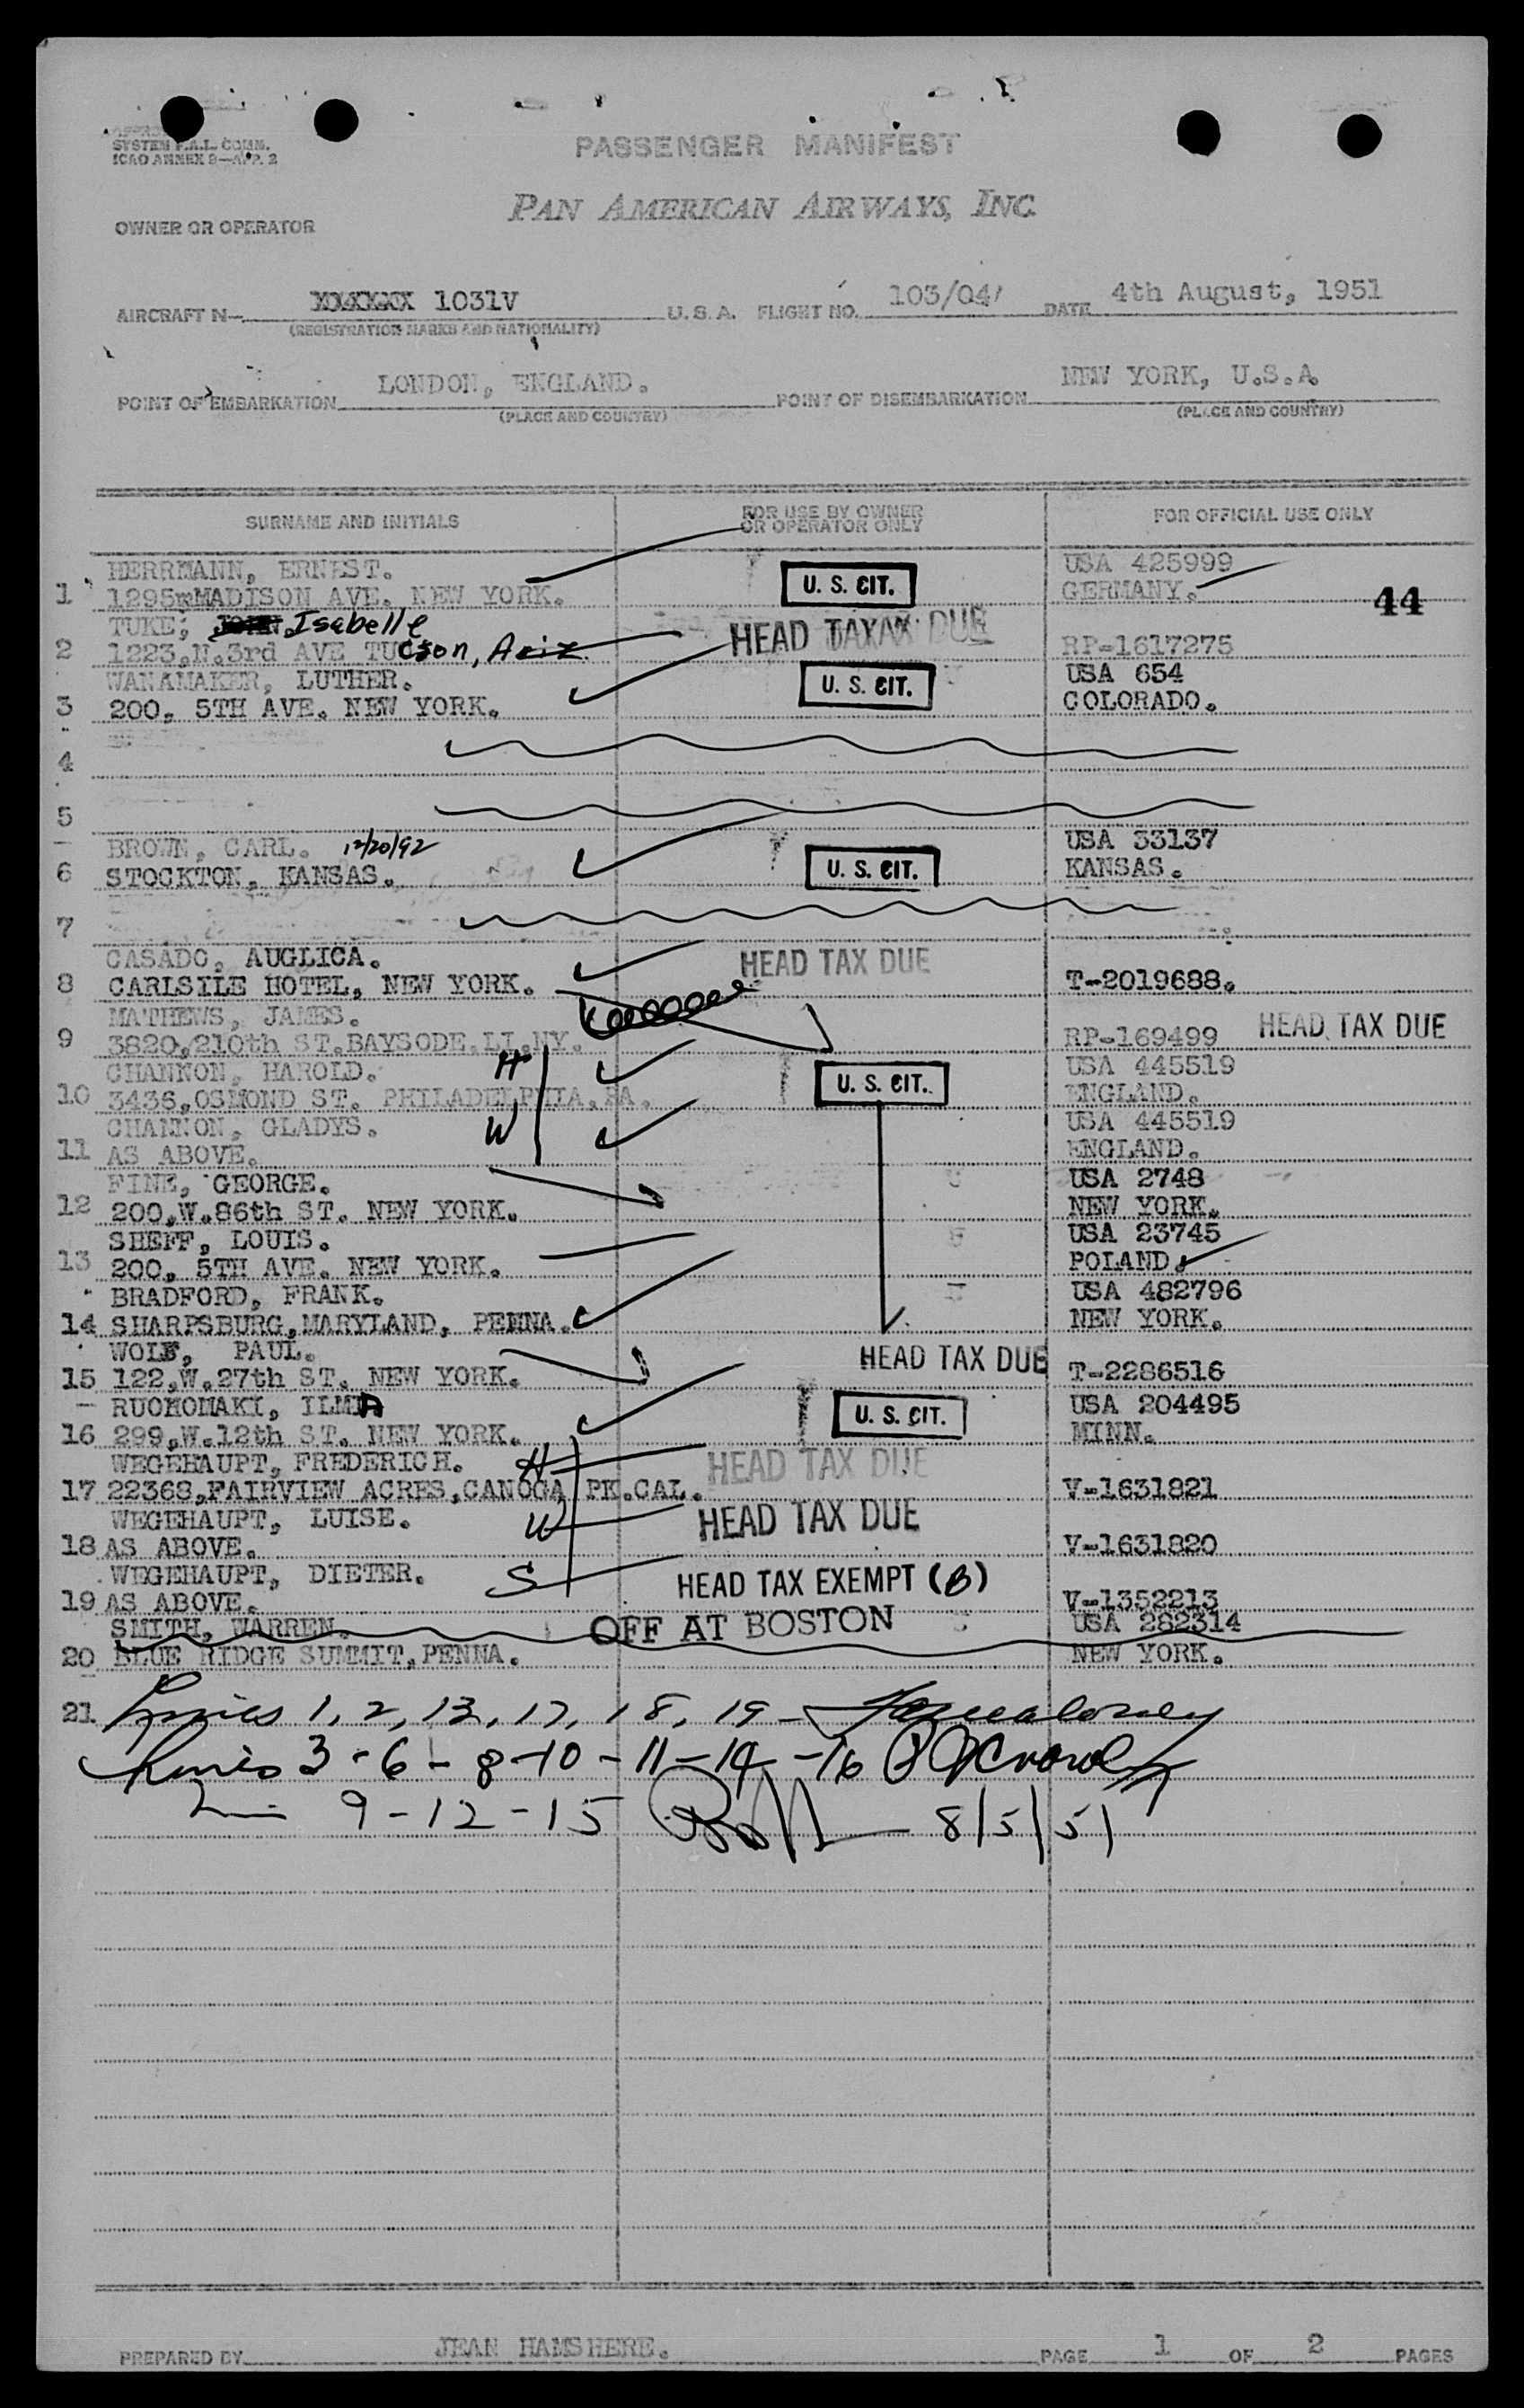 SYSTEM F.A.L. COMM.
ICAO ANNEX 9—APP. 2
PASSENGER MANIFEST
PAN AMERICAN AIRWAYS, INC.
OWNER OR OPERATOR
AIRCRAFT N— 1031V U.S.A. FLIGHT NO. 103/04 DATE 4th August, 1951
(REGISTRATION MARKS AND NATIONALITY)
POINT OF EMBARKATION LONDON, ENGLAND. POINT OF DISEMBARKATION NEW YORK, U.S.A.
(PLACE AND COUNTRY) (PLACE AND COUNTRY)
SURNAME AND INITIALS FOR USE BY OWNER OR OPERATOR ONLY FOR OFFICIAL USE ONLY
HERRMANN, ERNEST. USA 425999
1 1295 MADISON AVE. NEW YORK. U. S. CIT. GERMANY. 44
TUKE, JOHN. Isabelle HEAD TAX DUE
2 1223.N.3rd AVE TUCson, Ariz RP-1617275
WANAMAKER, LUTHER. U. S. CIT. USA 654
3 200, 5TH AVE. NEW YORK. COLORADO.
4
5
BROWN, CARL. 12/20/92 USA 33137
6 STOCKTON, KANSAS. U. S. CIT. KANSAS.
7
CASADO, AUGLICA. HEAD TAX DUE
8 CARLSILE HOTEL, NEW YORK. T-2019688.
MATHEWS, JAMES.
9 3820,210th ST.BAYSODE.LI.NY. RP-169499 HEAD TAX DUE
CHANNON, HAROLD. H USA 445519
10 3436,OSMOND ST. PHILADELPHIA.PA. U. S. CIT. ENGLAND.
CHANNON, GLADYS. W USA 445519
11 AS ABOVE. ENGLAND.
FINE, GEORGE. USA 2748
12 200,W.86th ST. NEW YORK. NEW YORK.
SHEFF, LOUIS. USA 23745
13 200, 5TH AVE. NEW YORK. POLAND.
BRADFORD, FRANK. USA 482796
14 SHARPSBURG,MARYLAND, PENNA. NEW YORK.
WOLF, PAUL. HEAD TAX DUE
15 122,W.27th ST. NEW YORK. T-2286516
RUOHOMAKI, ILMA U. S. CIT. USA 204495
16 299,W.12th ST. NEW YORK. MINN.
WEGEHAUPT, FREDERICH. H HEAD TAX DUE
17 22368,FAIRVIEW ACRES,CANOGA PK.CAL. V-1631821
WEGEHAUPT, LUISE. W HEAD TAX DUE
18 AS ABOVE. V-1631820
WEGEHAUPT, DIETER. S HEAD TAX EXEMPT (B)
19 AS ABOVE. V-1352213
SMITH, WARREN. OFF AT BOSTON USA 282314
20 BLUE RIDGE SUMMIT,PENNA. NEW YORK.
21. Lines 1, 2, 13, 17, 18, 19 -
Lines 3 - 6 - 8 - 10 - 11 - 14 - 16
9 - 12 - 15 8/5/51
PREPARED BY JEAN HAMSHERE. PAGE 1 OF 2 PAGES